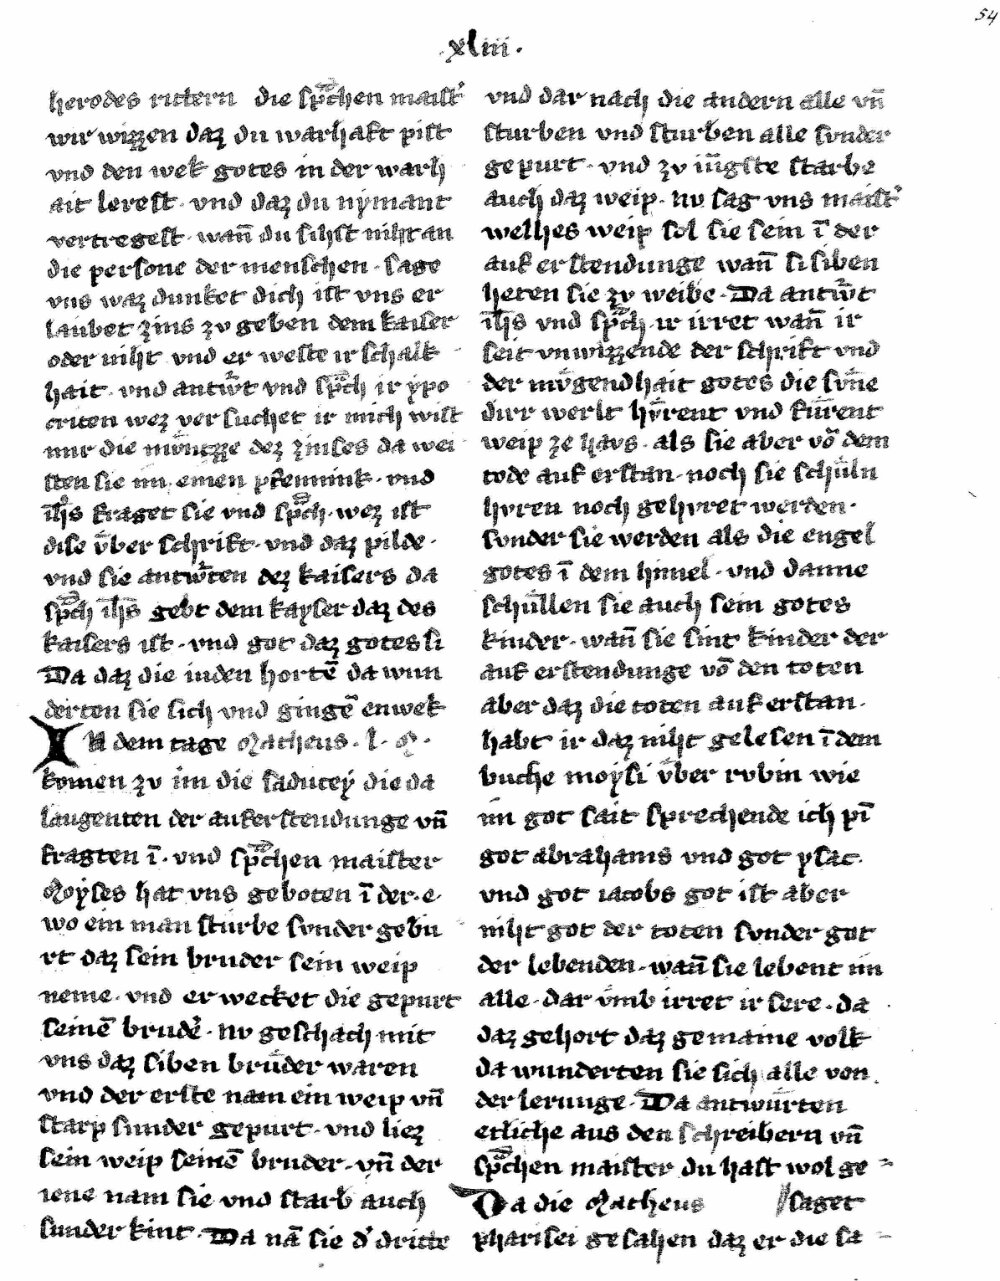 54
.xliii.
herodes rittern die sp̄chen maist᾽
wir wizzen daz du warhaft pist
vnd den wek gotes in der warh
ait lerest · vnd daz du nymant
vertregest · wañ du sihst niht an
die persone der menschen · sage
vns waz dunket dich ist vns er
laubet zins zv geben dem kaiser
oder niht vnd er weste ir schalk
hait · vnd antw̄t vnd sp̄ch ir ypo
criten wez versuchet ir mich wist
mir die mv̈ntzze dez zinses da wei
sten sie im einen pfennink · vnd
ih̄s fraget sie vnd sp̄ch · wez ist
dise v̈ber schrift · vnd daz pilde ·
vnd sie antw̄ten dez kaisers da
sp̄ch ih̄s gebt dem kayser daz des
kaisers ist · vnd got daz gotes si
Da daz die iuden hortē da wun
derten sie sich vnd gingē enwek
IN dem tage Matheus · l · M ·
komen zv im die saducey die da
laugenten der auferstendunge vñ
fragten ī · vnd sp̄chen maister
Moyses hat vns geboten ī der · e ·
wo ein man sturbe svnder gebu
rt daz sein bruder sein weip
neme · vnd erwecket die gepurt
seinē brud᾽ · nv geschach mit
vns daz siben brüder waren
vnd der erste nam ein weip vñ
starp sunder gepurt · vnd liez
sein weip seinē bruder · vñ der
iene nam sie vnd starb auch
sunder kint · Da nā sie d᾽ dritte
vnd dar nach die andern alle vñ
sturben vnd sturben alle svnder
gepurt · vnd zv iūgste starbe
auch daz weip · nv sag vns maist᾽
welhes weip sol sie sein ī der
auferstendunge wañ si siben
heten sie zv weibe · Da antw̄t
ih̄s vnd sp̄ch · ir irret wañ ir
seit vnwizzende der schrift vnd
der mv̈gendhait gotes die sv̈ne
dirr werlt hv̈rent vnd fürent
weip ze havs · als sie aber vō dem
tode auf erstan · noch sie schüln
hvren noch gehvret werden ·
svnder sie werden als die engel
gotes ī dem himel · vnd danne
schüllen sie auch sein gotes
kinder · wañ sie sint kinder der
auf erstendunge vō den toten
aber daz die toten auf erstan ·
habt ir daz niht gelesen ī dem
buche moysi v̈ber rvbin wie
im got sait sprechende ich pī
got abrahams vnd got ysac ·
vnd got iacobs got ist aber
niht got der toten svnder got
der lebenden · wañ sie lebent im
alle · dar v̈mb irret ir sere · da
daz gehort daz gemaine volk
da wunderten sie sich alle von
der lerunge · Da antwürten
etliche aus den schreibern vñ
sp̄chen maister du hast wol ge =
Da die Matheus // saget
pharisei gesahen daz er die sa =